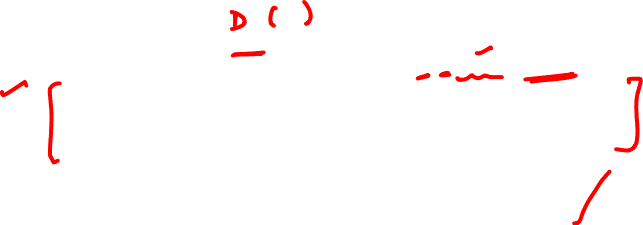 D ( )
[ ]